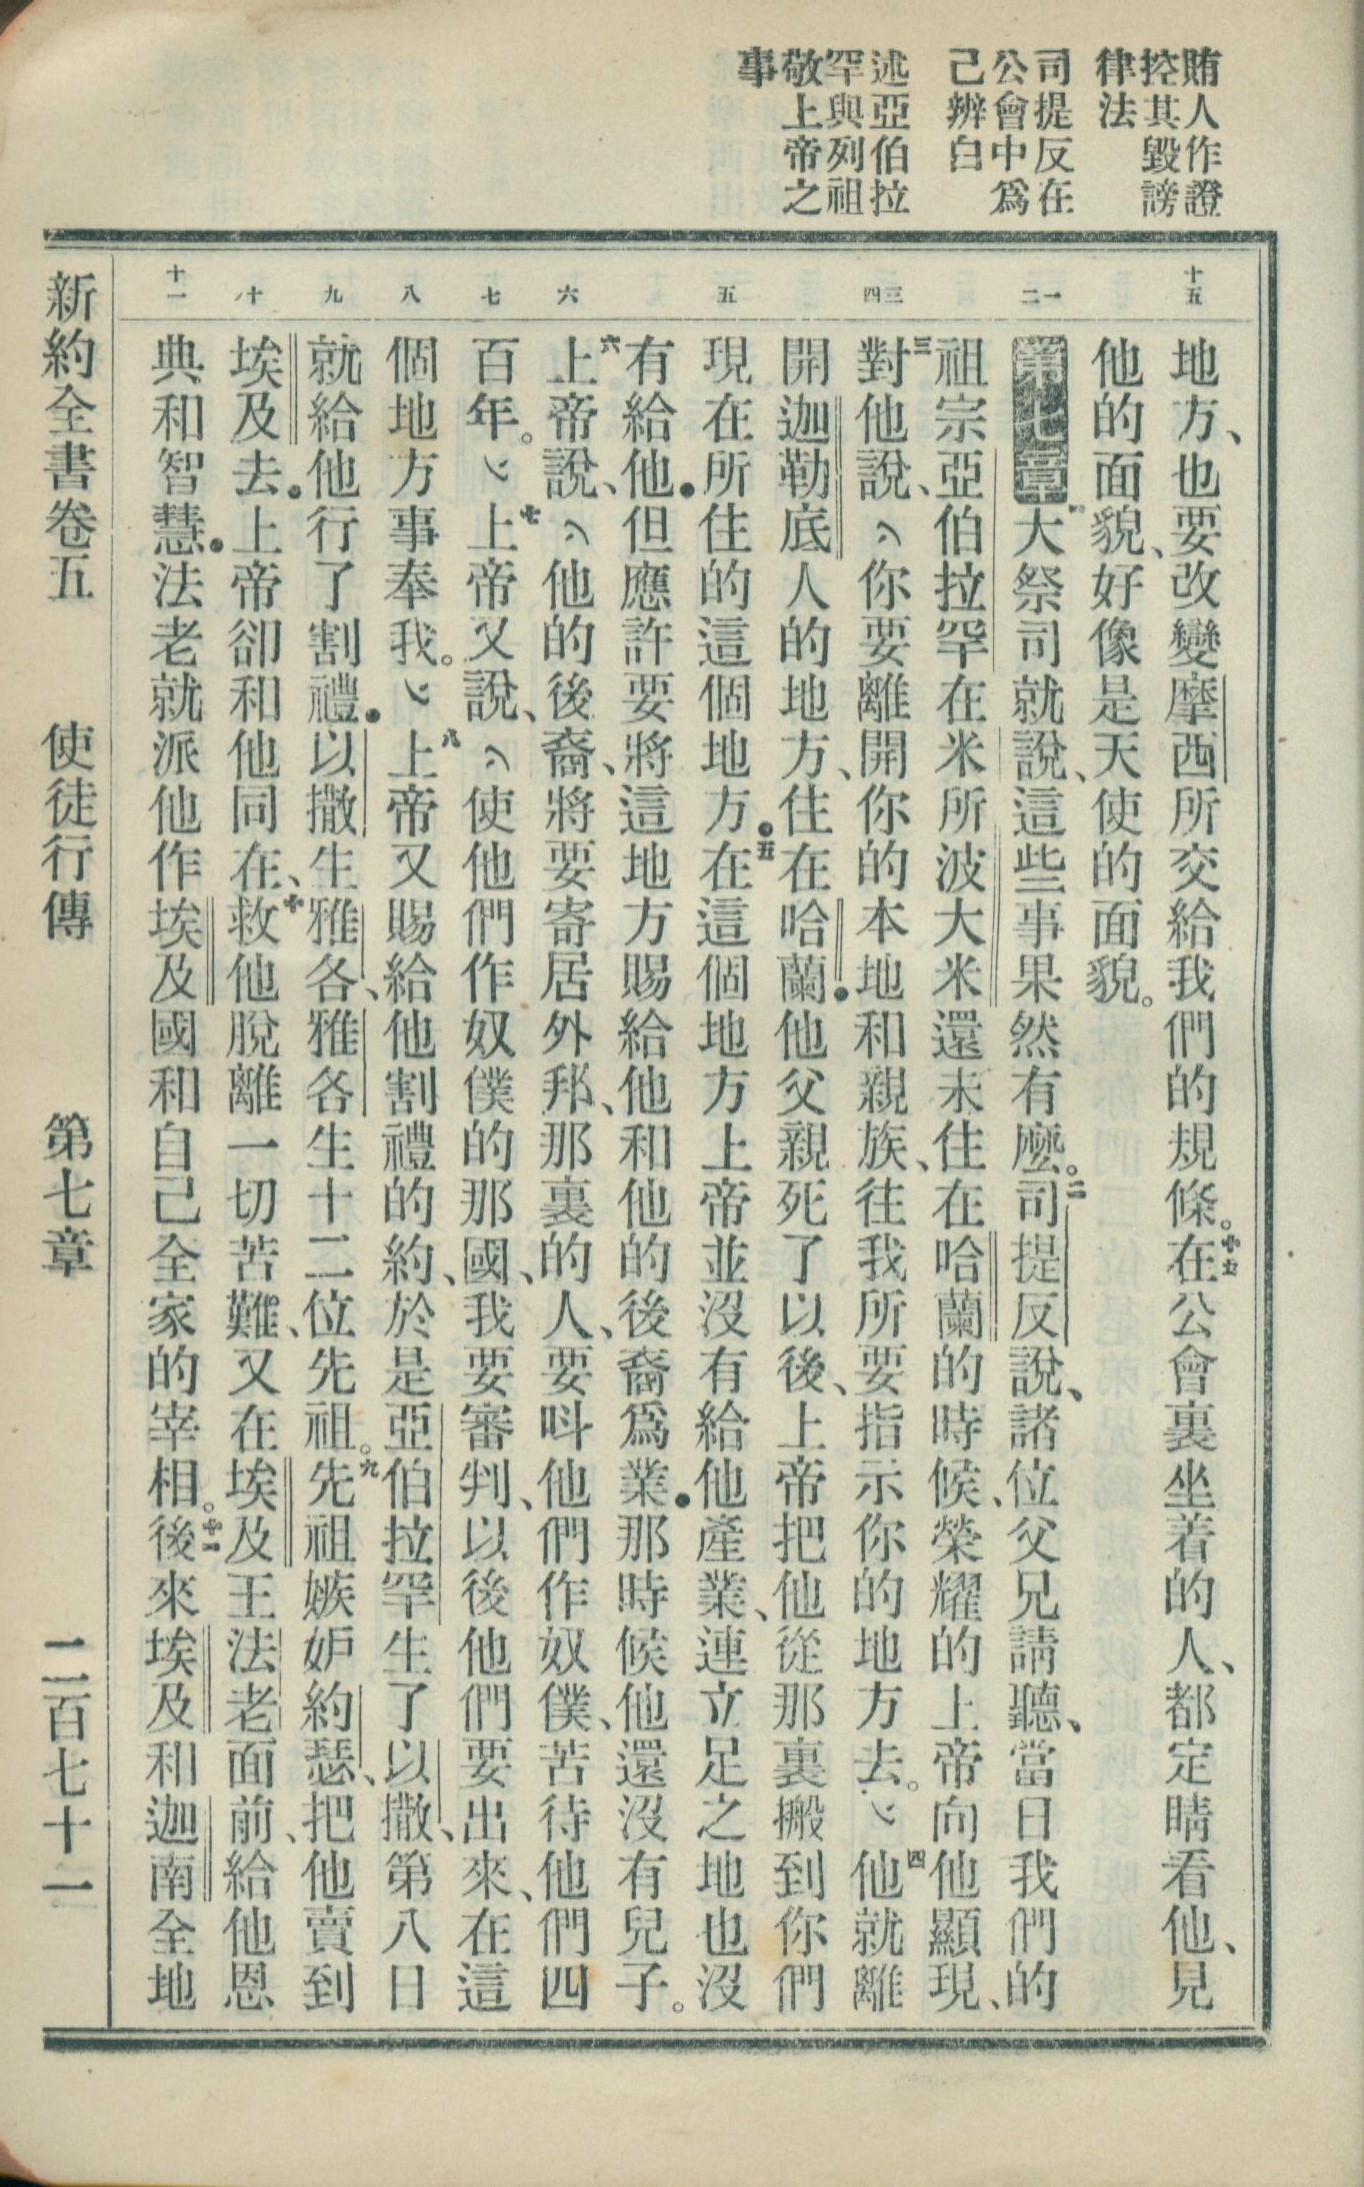 賄人作證
控其毀謗
律法
司提反在
公會中爲
己辨白
述亞伯拉
罕與列祖
敬上帝之
事
十五
一
二
三
四
五
六
七
八
九
十
十一
地方、也要改變摩西所交給我們的規條。十五在公會裏坐着的人、都定睛看他、見
他的面貌、好像是天使的面貌。
第七章一大祭司就說、這些事果然有麼。二司提反說、諸位父兄請聽、當日我們的
祖宗亞伯拉罕在米所波大米還未住在哈蘭的時候、榮耀的上帝向他顯現、
三對他說、︿你要離開你的本地和親族、往我所要指示你的地方去。﹀四他就離
開迦勒底人的地方、住在哈蘭.他父親死了以後、上帝把他從那裏搬到你們
現在所住的這個地方.五在這個地方上帝並沒有給他產業、連立足之地也沒
有給他.但應許要將這地方賜給他和他的後裔爲業.那時候他還沒有兒子。
六上帝說、︿他的後裔、將要寄居外邦、那裏的人、要呌他們作奴僕、苦待他們四
百年。﹀七上帝又說、︿使他們作奴僕的那國、我要審判、以後他們要出來、在這
個地方事奉我。﹀八上帝又賜給他割禮的約、於是亞伯拉罕生了以撒、第八日
就給他行了割禮.以撒生雅各、雅各生十二位先祖。九先祖嫉妒約瑟、把他賣到
埃及去.上帝卻和他同在、十救他脫離一切苦難、又在埃及王法老面前、給他恩
典和智慧.法老就派他作埃及國和自己全家的宰相。十一後來埃及和迦南全地
新約全書卷五　使徒行傳　第七章　二百七十一